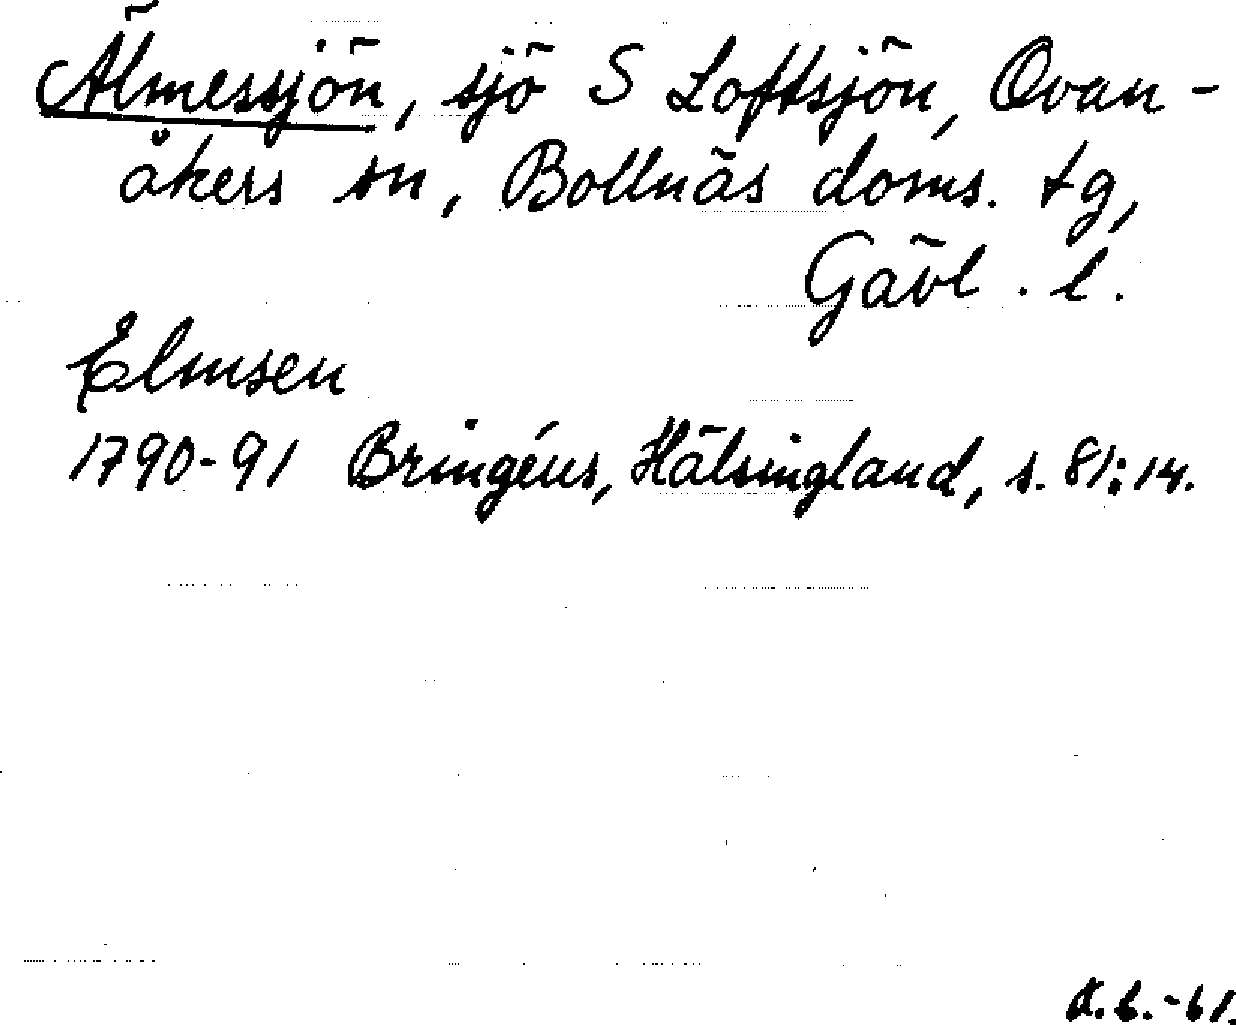 Älmessjön, sjö S Loftsjön, Ovan-
åkers sn, Bollnäs doms. tg,
Gävl. l.
Elmsen
1790-91 Bringéus, Hälsingland, s. 81:14.